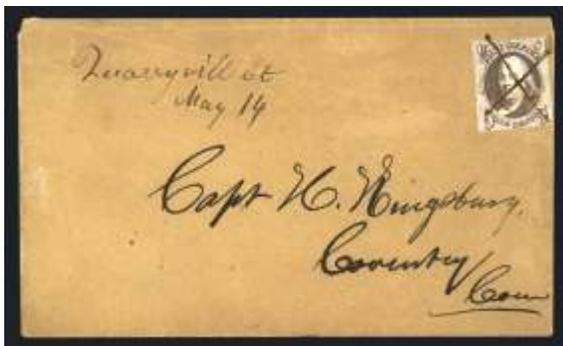 Quarryvill ct
May 14
Capt H. Kingsbury.
Coventry
Conn